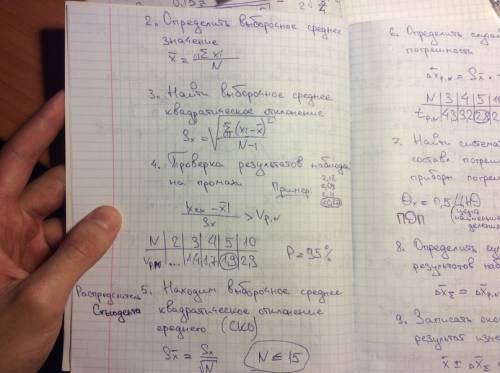 2. Определить выборочное среднее
значение
x̄ = Σxᵢ / N
3. Найти выборочное среднее
квадратическое отклонение
Sₓ = √(Σ(xᵢ-x̄)² / N-1)
4. Проверка результатов наблюд
на промахи
Пример:
|x - x̄| / Sₓ > V_P,N
N | 2 | 3 | 4 | 5 | 10
V_PN ... 1,4 1,7 1,9 2,3
P = 95%
5. Находим выборочное среднее
квадратическое отклонение
среднего (СКО)
S_x̄ = Sₓ / √N
N ≤ 15
Стьюдента
6. Определить случ
погрешность
Δx_P,N = S_x̄ ·
N | 3 | 4 | 5 | 10
t_P,N 4,3 3,2 2,8 2
7. Найти система
состав погре
прибора погре
Θₓ = 0,5/ЦД
цена
деления
8. Определить су
результатов на
Δx_Σ = √Δx_P,N
9. Записать око
результат изме
x̄ ± Δx_Σ